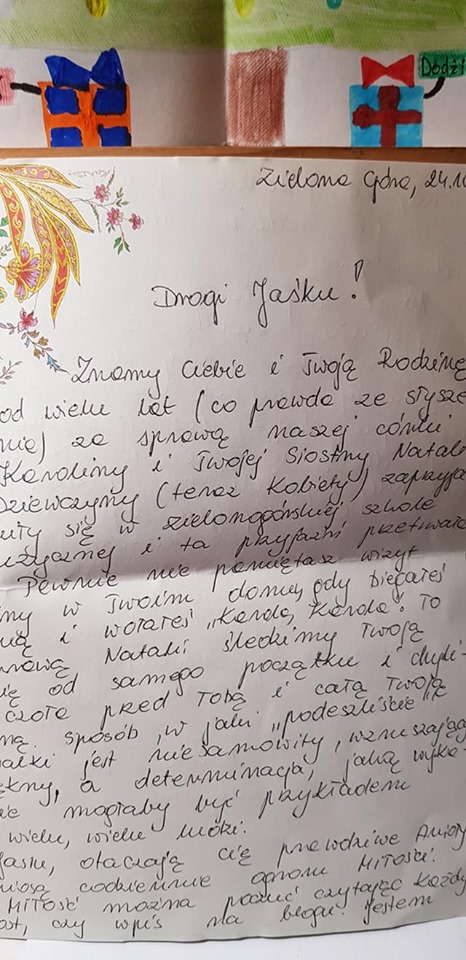 Dodzi
Zielona Góra, 24.10
Drogi Jaśku!
Znamy Ciebie i Twoją Rodzinę
od wielu lat (co prawda ze słysze
nie) za sprawą naszej córki
Karoliny i Twojej Siostry Natali
Dziewczyny (teraz Kobiety) zaprzyja
niły się w zielonogórskiej szkole
uzycznej i ta przyjaźń przetrwała
Pewnie nie pamiętasz wizyt
ny w Twoim domu, gdy biegałeś
nią i wołałeś "Karola, Karola". To
Natalii śledzimy Twoją
ę od samego początku i chyli-
czoła przed Tobą i całą Twoją
ną. Sposób, w jaki "podeszliście"
alki jest niesamowity, wzruszając
ękny, a determinacja, jaką wyka-
ie mogłaby być przykładem
wielu, wielu ludzi.
Jasiu, otaczają Cię prawdziwe Anioły
niosą codziennie ogrom Miłości.
Miłość można poczuć czytając każdy
ost, czy wpis na blogu. Jestem